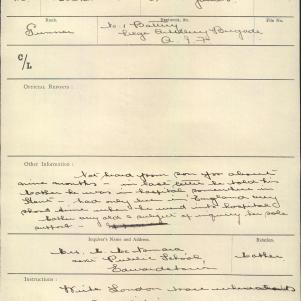 Rank.
Regiment, &c.
File No.
Gunner
No 1 Battery
Siege Artillery Brigade
A. I. F.
C/L
OFFICIAL REPORTS :
Other Information :
Not heard from son for about
nine months - in last letter he told his
he was in hospital somewhere in
- had only been in England very
short time when he went into hospital,
mother very old & subject of inquiry her sole
support.
Inquirer's Name and Address.
Relation.
Mrs.
near Public School,
mother
Instructions :
Write London trace whereabouts